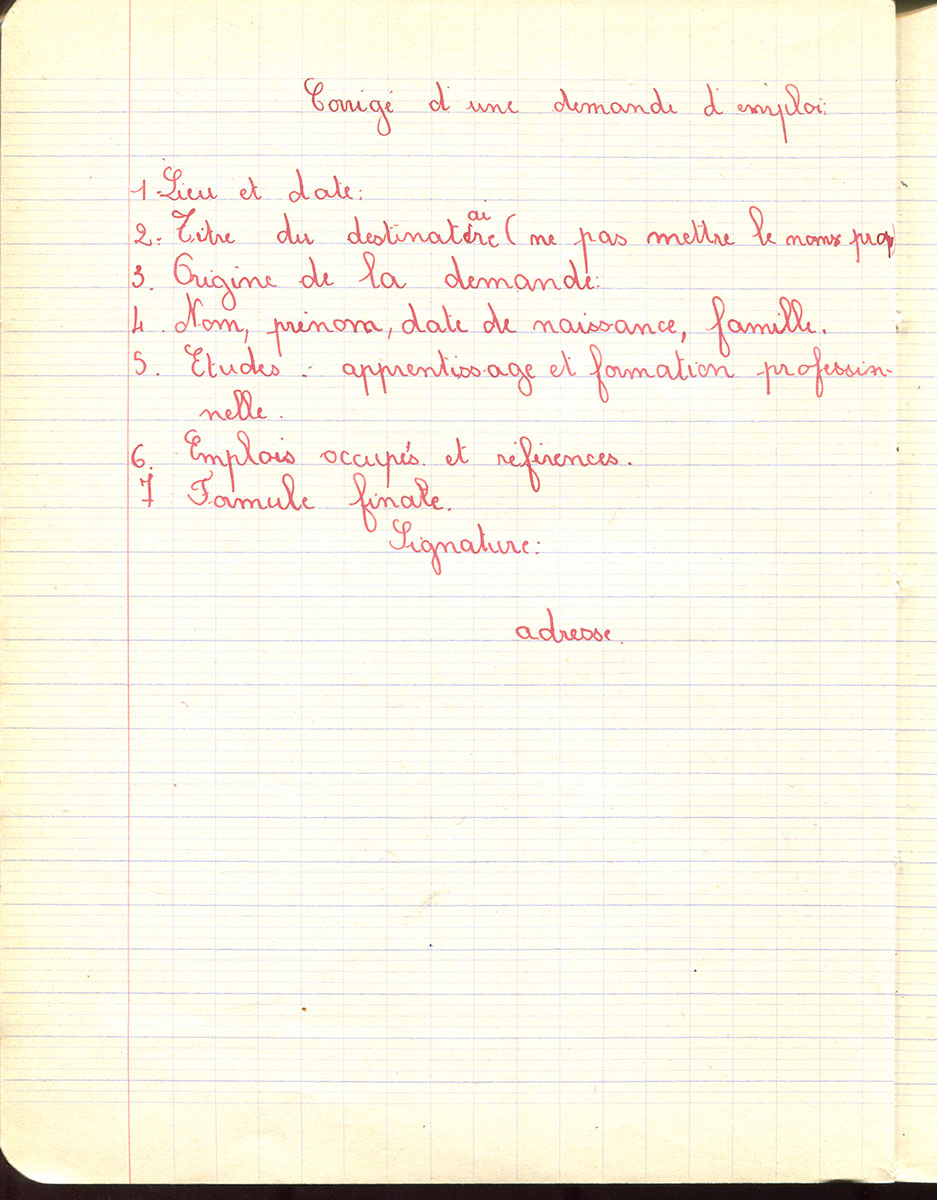 Corrigé d'une demande d'emploi.
1. Lieu et date:
2. Titre du destinataire (ne pas mettre le noms
3. Origine de la demande:
4. Nom, prénom, date de naissance, famille.
5. Etudes: apprentissage et formation professin-
nelle.
6. Emplois occupés et références.
7 Formule finale.
Signature:
adresse.